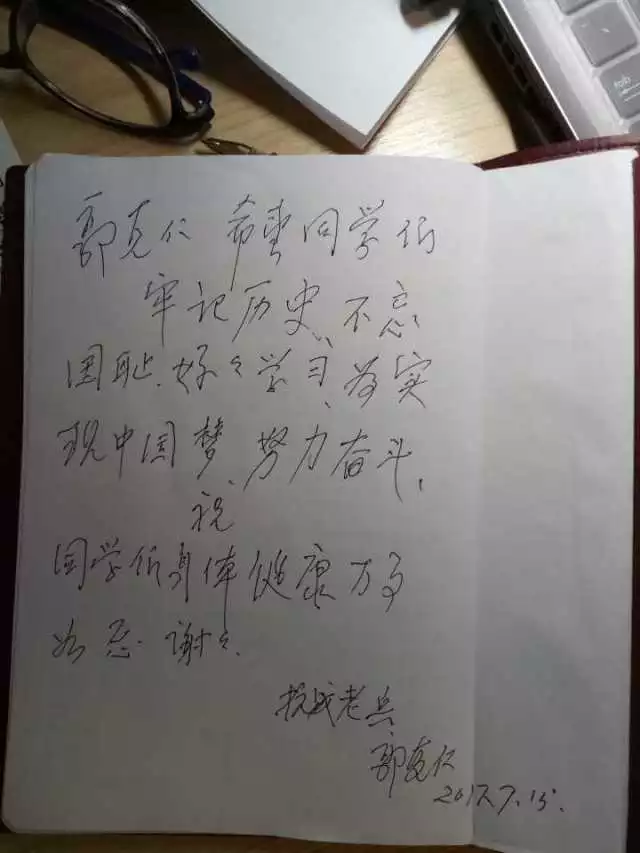 郭克仁 希望同学们
牢记历史、不忘
国耻、好々学习、为实
现中国梦、努力奋斗,
祝
同学们身体健康万事
如意. 谢々.
抗战老兵
郭克仁
2017.7.15.
tab